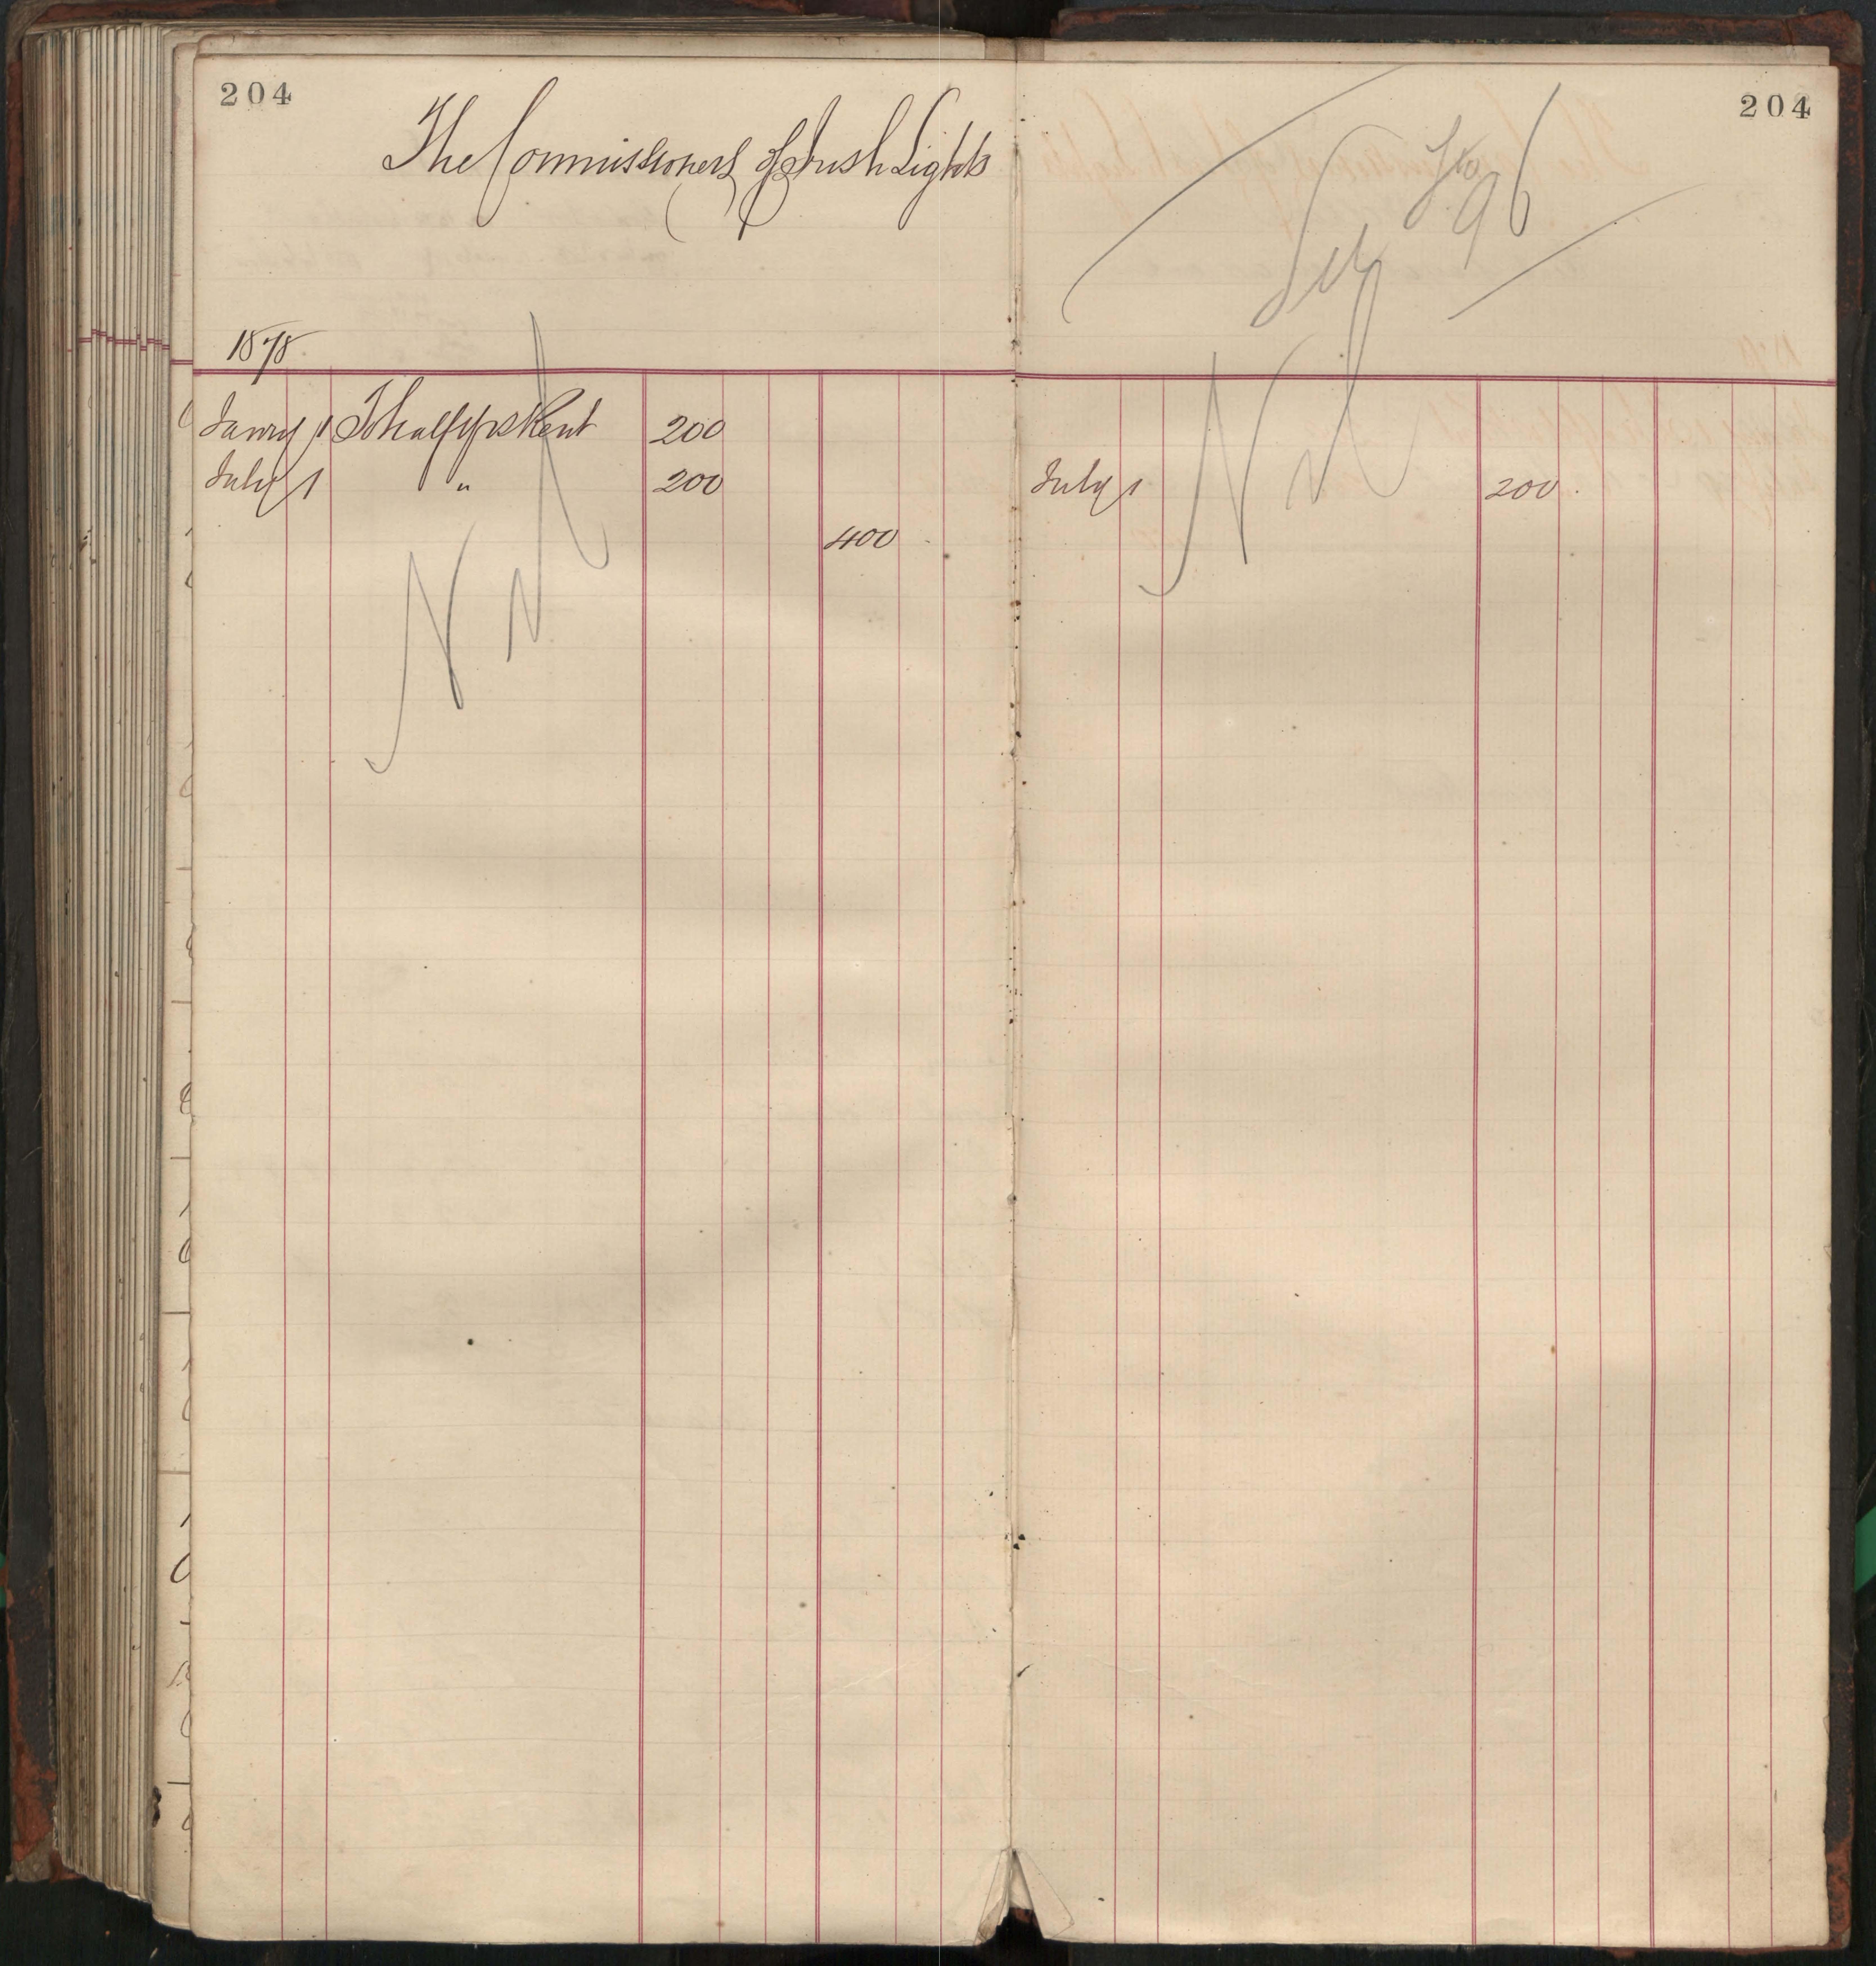 204
The Commissioners of Irish Lights
1878
Janry 1 To half yrs Rent 200
July 1 " 200
400
204
96
July 1 200